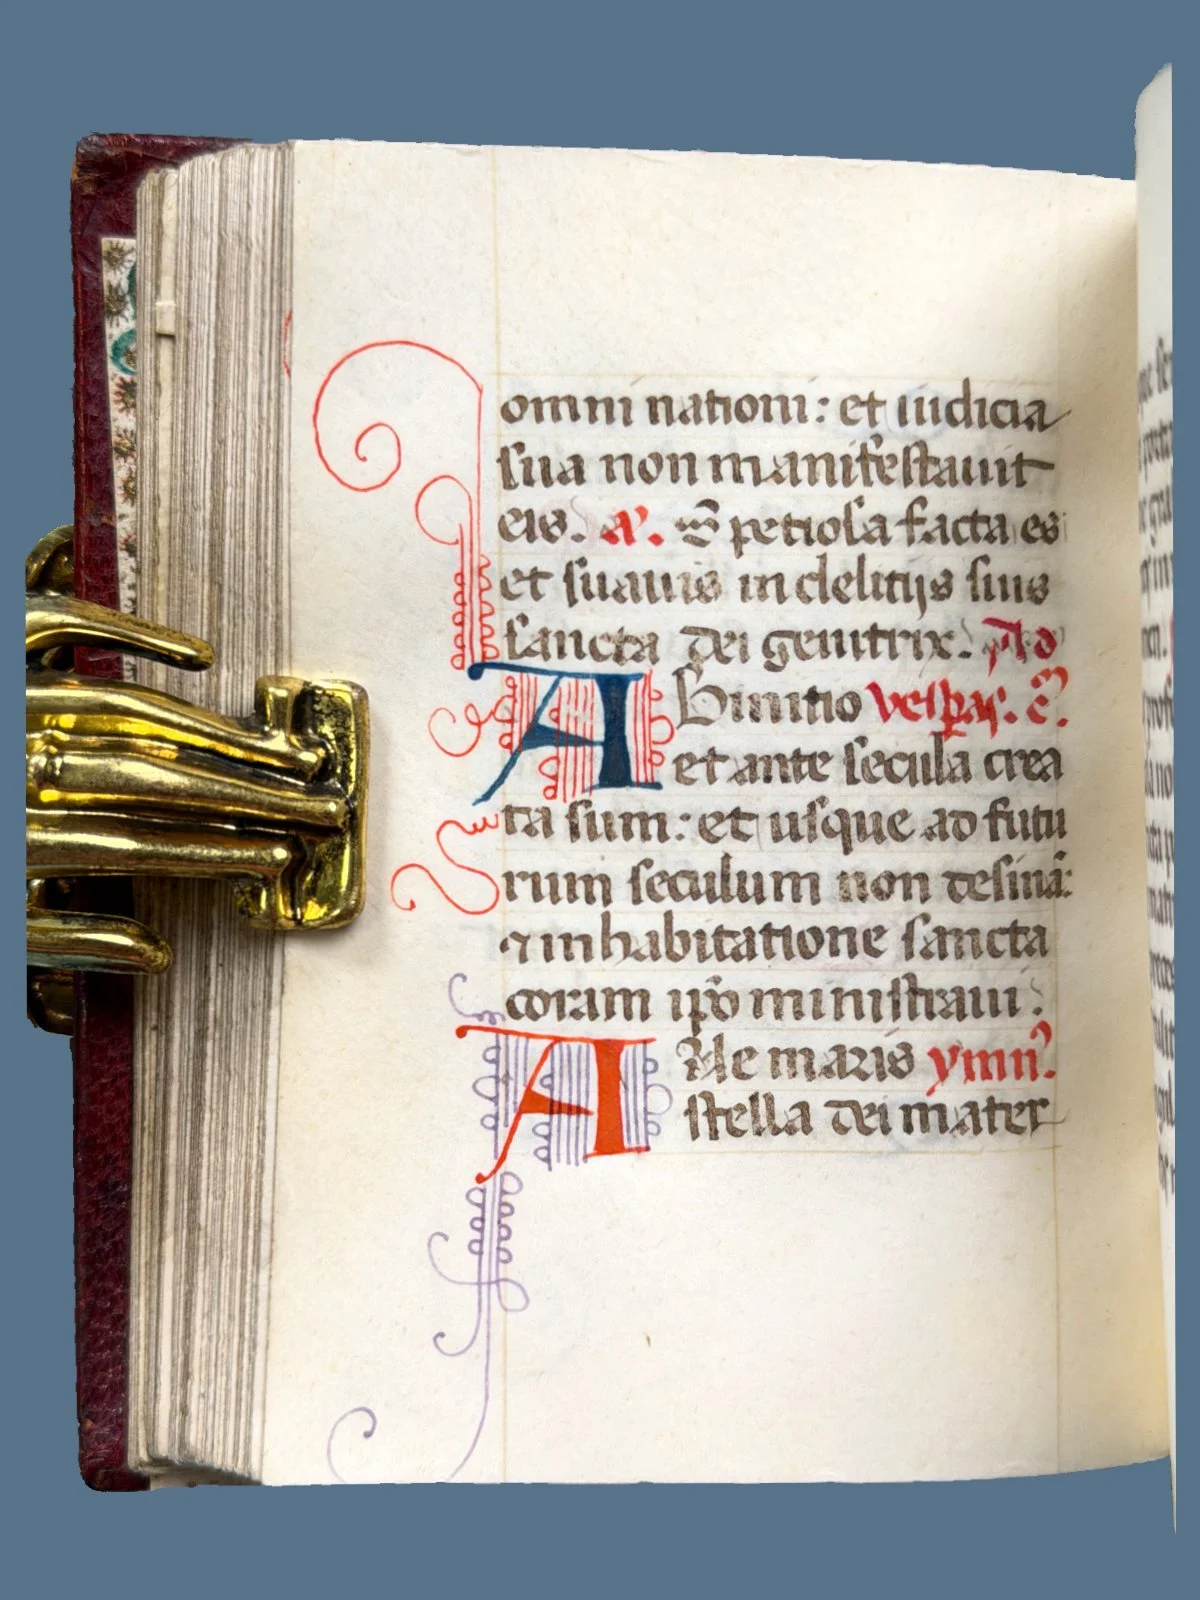 omni nationi: et iudicia
sua non manifestauit
eis. a'. S petiosa facta es
et suauis in delitijs suis
sancta dei genitrix. Ad
AB initio vesꝑas. c̄.
et ante secula crea
ta sum: et usque ad futu
rum seculum non desinā:
⁊ in habitatione sancta
coram ip̄o ministraui:
AUe maris ymn̄.
stella dei mater